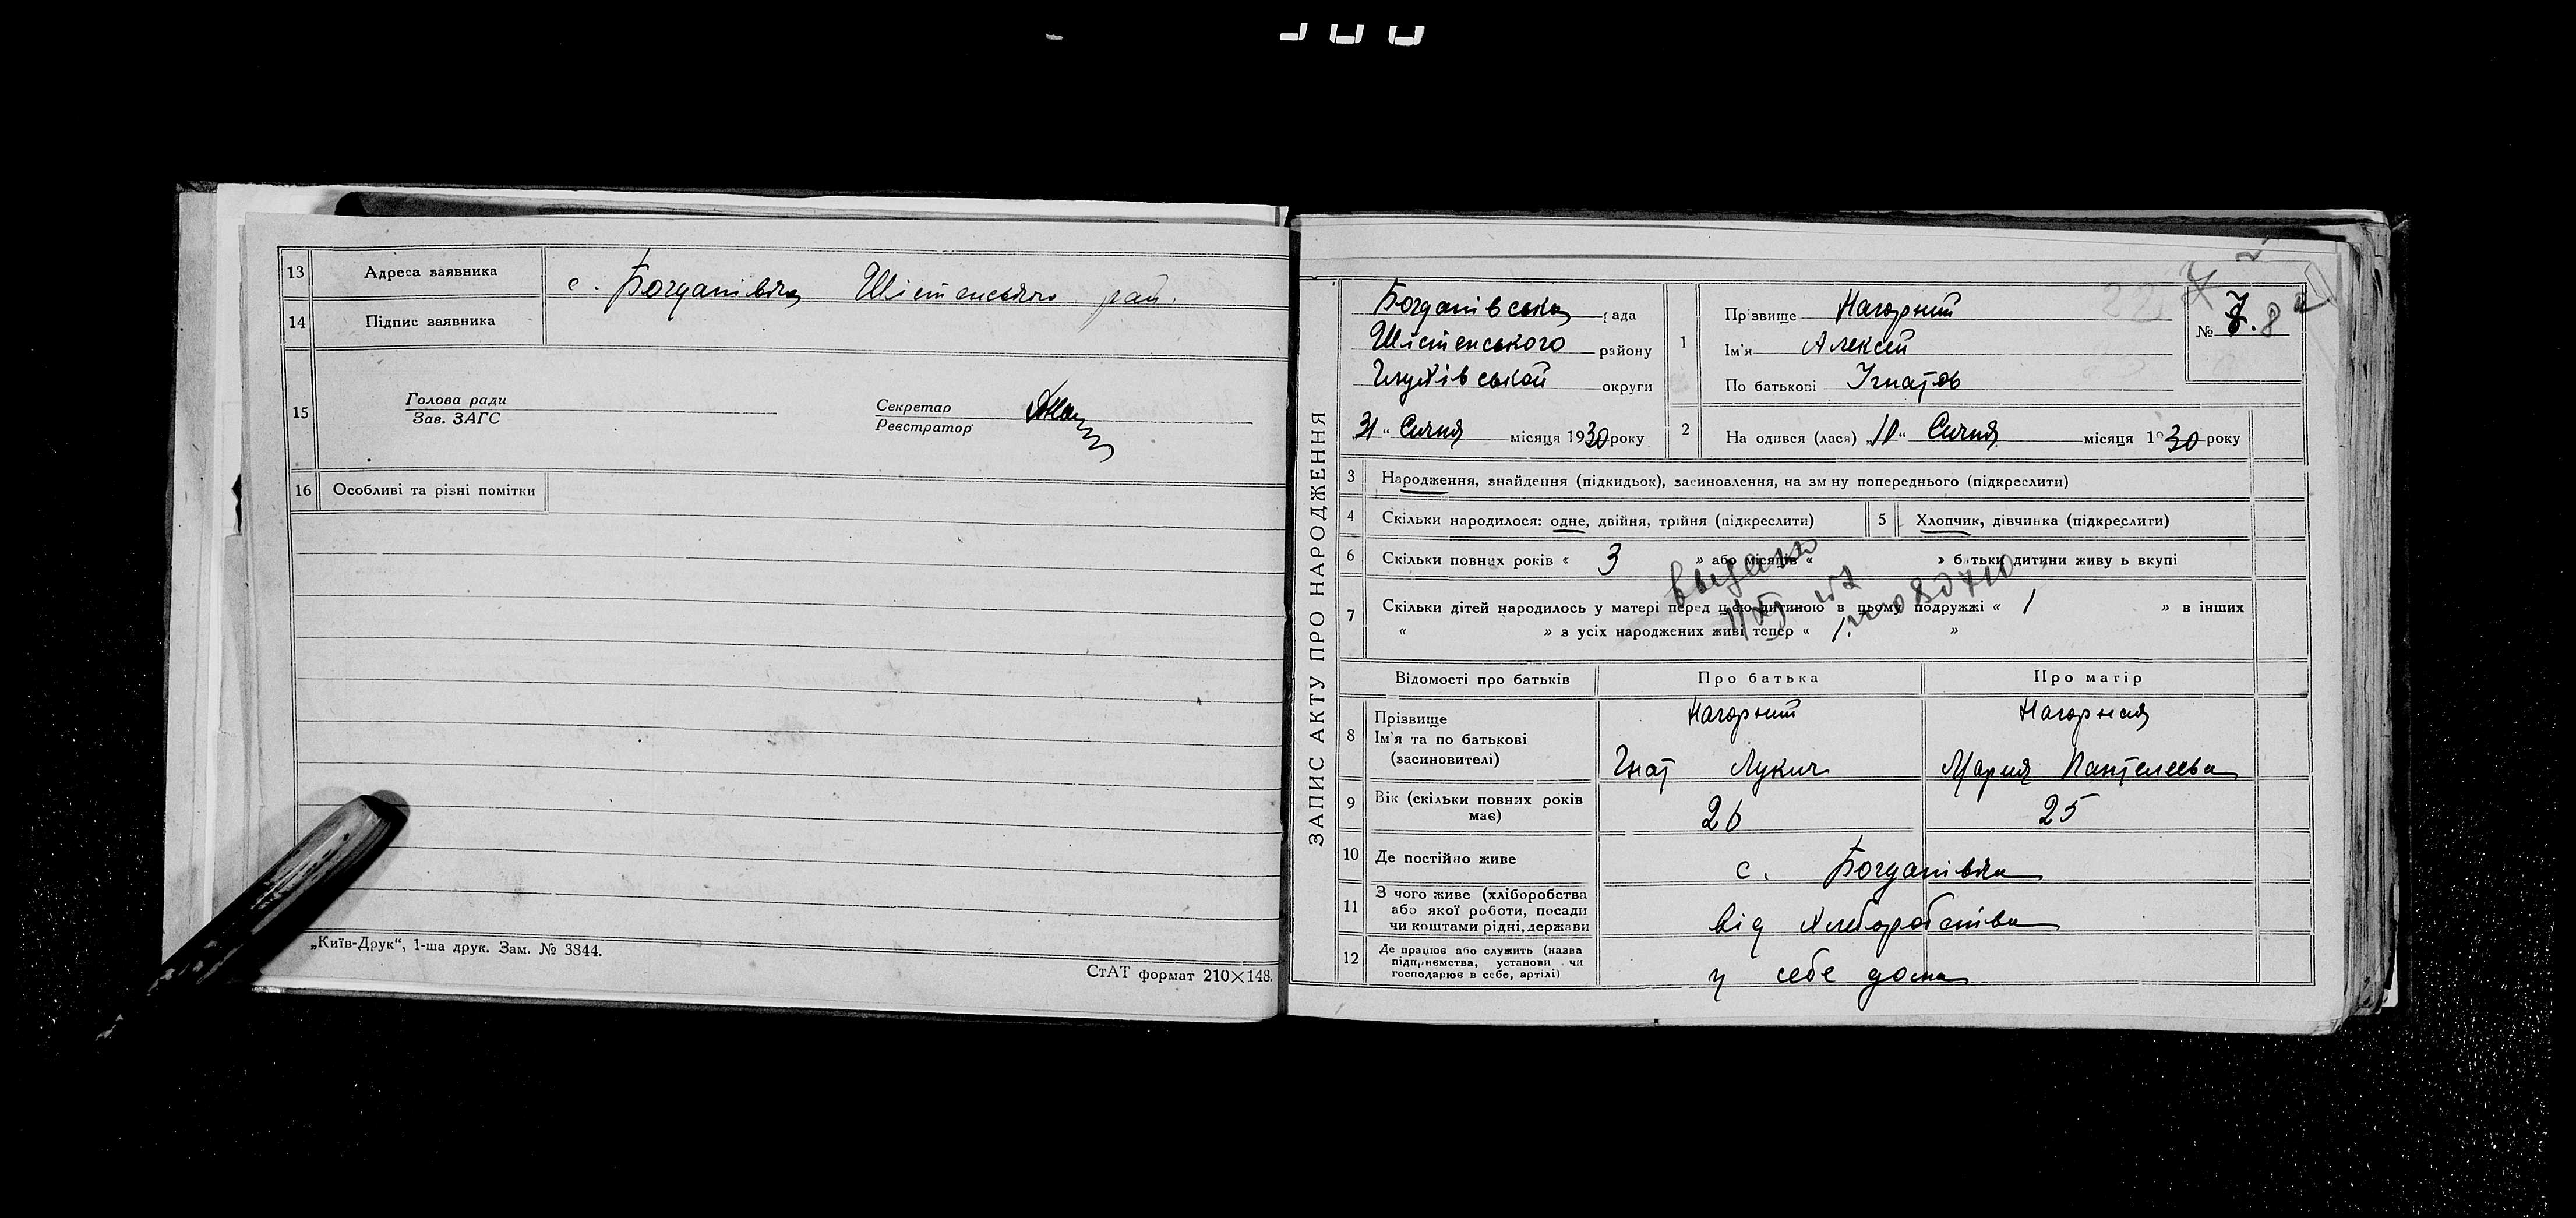 13 Адреса заявника с. Богданівка Шістенського рай.
14 Підпис заявника
15 Голова ради
Зав. ЗАГС
Секретар
Реєстратор
16 Особливі та різні помітки
„Київ-Друк“, 1-ша друк. Зам. № 3844.
СтАТ формат 210×148.
ЗАПИС АКТУ ПРО НАРОДЖЕННЯ
Богданівська рада
Шістенського району
Глухівській округи
31 „ Січня місяця 1930 року
1 Прізвище Нагорний
Ім'я Алексей
По батькові Ігнатов
№ 7. 8
2 На одився (лася) „10“ Січня місяця 1930 року
3 Народження, знайдення (підкидьок), засиновлення, на зм ну попереднього (підкреслити)
4 Скільки народилося: одне, двійня, трійня (підкреслити)
5 Хлопчик, дівчинка (підкреслити)
6 Скільки повних років « 3 » або місяців « » батьки дитини живу ь вкупі
7 Скільки дітей народилось у матері перед цією дитиною в цьому подружжі « 1 » в інших
« » з усіх народжених живі тепер « 1. »
Відомості про батьків Про батька Про матір
8 Прізвище
Ім'я та по батькові
(засиновителі)
Нагорний
Гнат Лукич
Нагорная
Мария Пантелеева
9 Вік (скільки повних років
має)
26 25
10 Де постійно живе с. Богданівка
11 З чого живе (хліборобства
або якої роботи, посади
чи коштами рідні, держави
від хлеборобства
12 Де працює або служить (назва
підприємства, установи чи
господарює в себе, артілі)
у себе дома